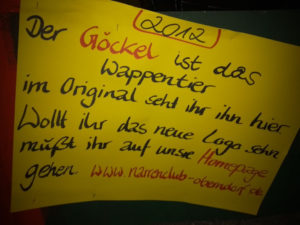 2012
Der Göckel ist das
Wappentier
im Original seht ihr ihn hier
Wollt ihr das neue Logo sehn
müßt ihr auf unsre Homepage
gehen. www.narrenclub-oberndorf.de